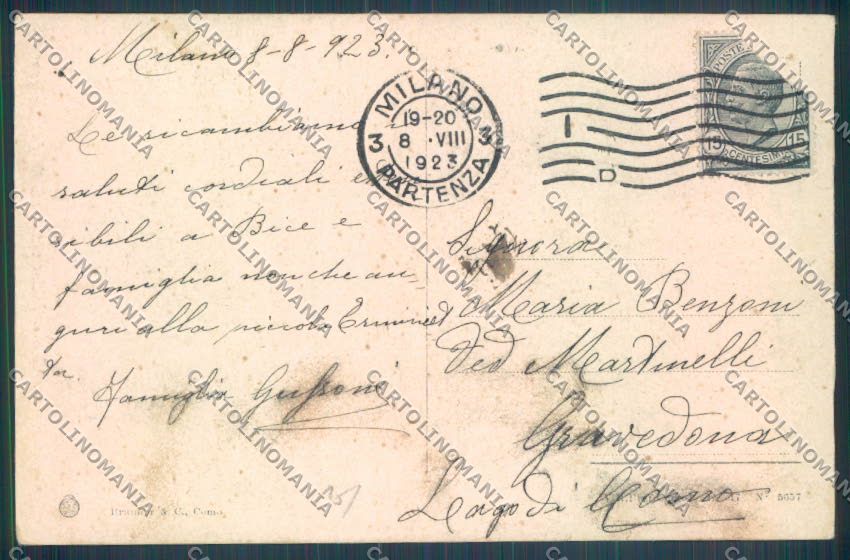 Milano 8-8-923.
Le ricambiamo i
saluti cordiali e
ibili a Bice e
famiglia nonchè au-
guri alla piccola Erminiet
ta.
Famiglia Gussoni
MILANO
PARTENZA
3 3
19-20
8 · VIII
1923
I
D
POSTE
15 CENTESIMI 15
Signora
Maria Benzoni
Ved Martinelli
Gravedona
Lago di Como
Brunner & C., Como
N° 5657
CARTOLINOMANIA